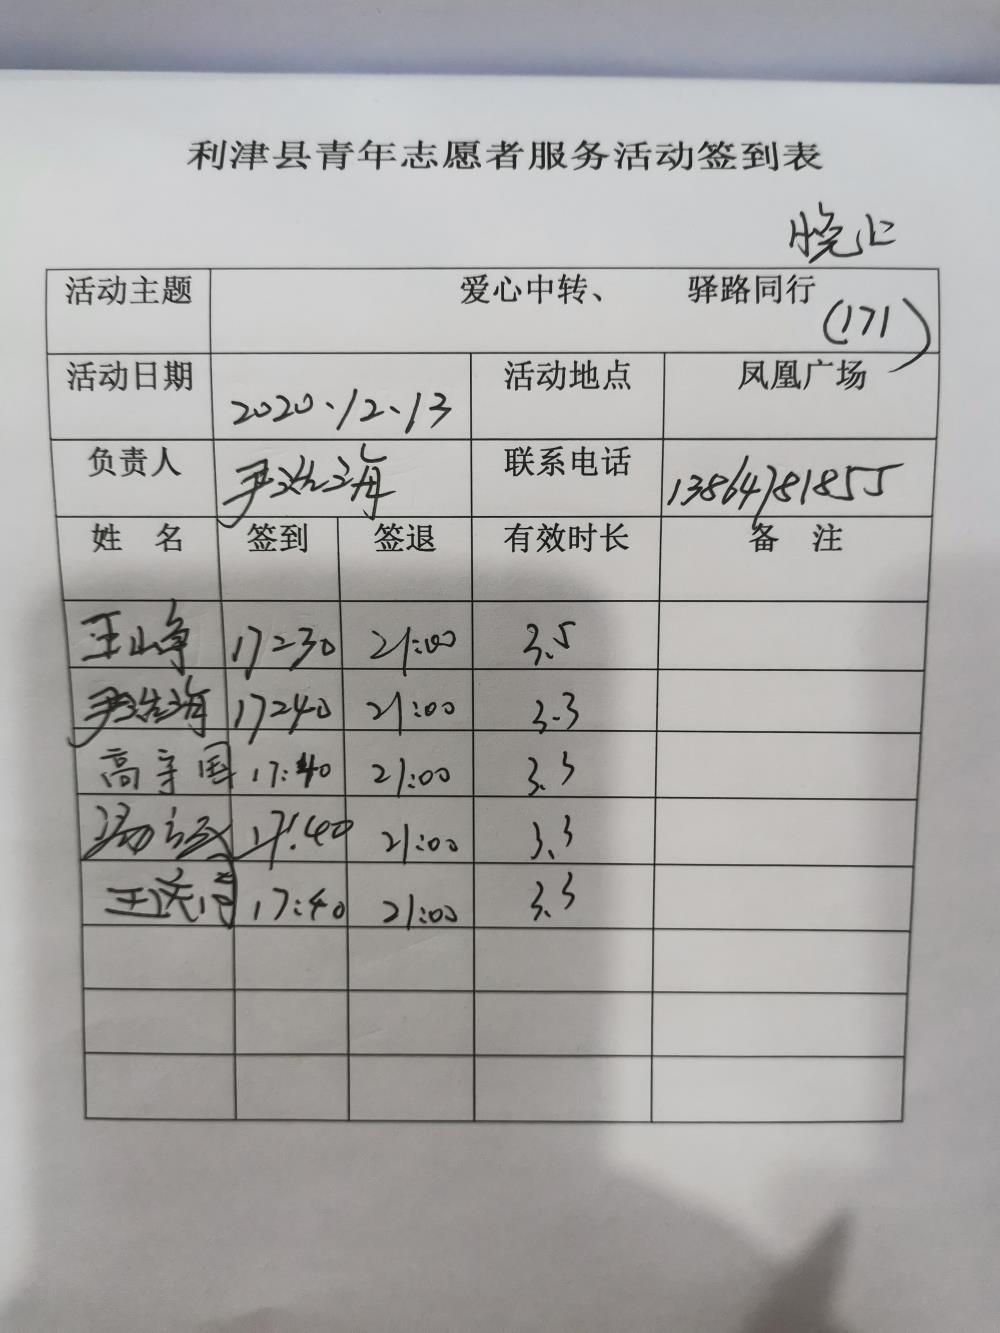 利津县青年志愿者服务活动签到表
晚上
活动主题 爱心中转、 驿路同行
(171)
活动日期 2020.12.13 活动地点 凤凰广场
负责人 尹浩海 联系电话 13864781855
姓 名 签到 签退 有效时长 备 注
王山峥 17:30 21:00 3.5
尹浩海 17:40 21:00 3.3
高守国 17:40 21:00 3.3
17:40 21:00 3.3
17:40 21:00 3.3